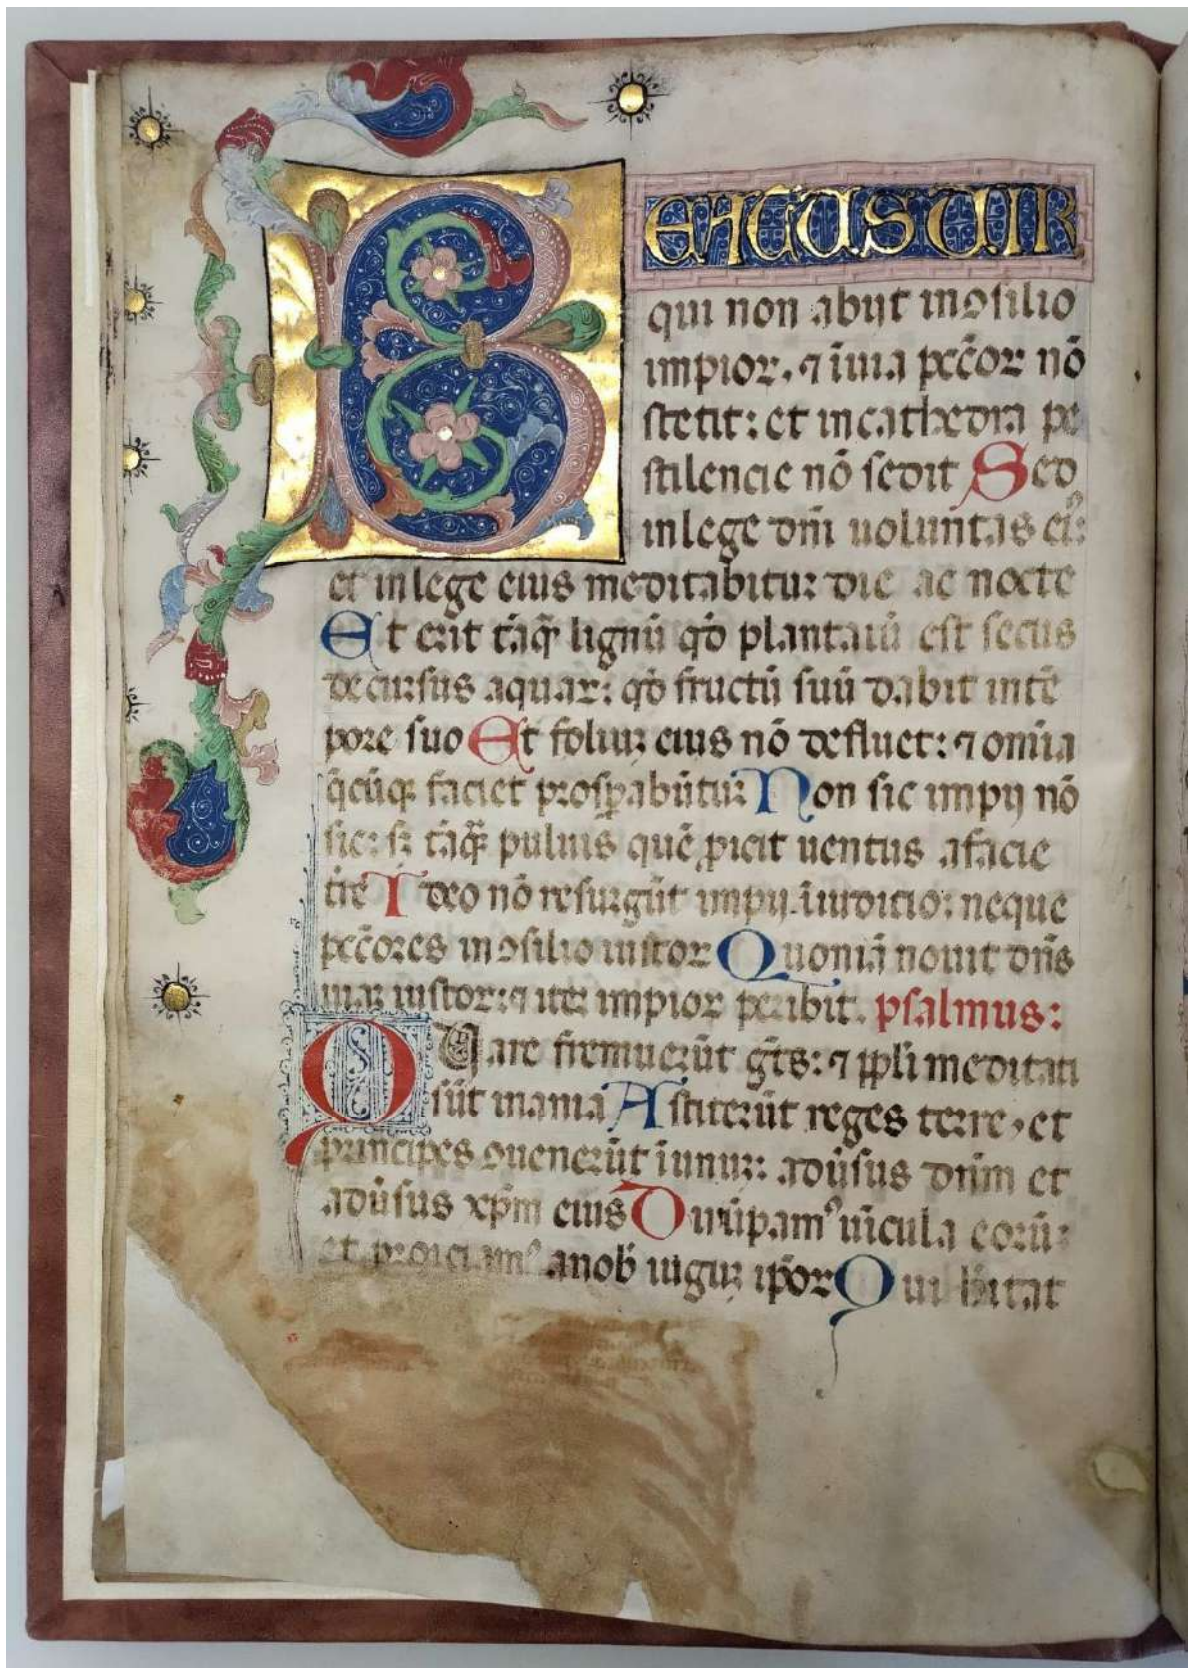 BEATUS UIR
qui non abijt in ꝯsilio
impioꝝ. ⁊ ī uia pc̄c̄oꝝ nō
stetit: et in cathedra pe
stilencie nō sedit Sed
in lege dn̄i uoluntas eiꝰ:
et in lege eius meditabitur die ac nocte
Et erit tāq̄ lignū qd̄ plantatū est secus
decursus aquaꝝ: qd̄ fructū suū dabit in tē
pore suo Et foliuꝫ eius nō defluet: ⁊ om̄ia
q̄cūqꝫ faciet prosꝑabūtur Non sic impij nō
sic: sꝫ tāq̄ꝫ puluis quē ꝓicit uentus a facie
tr̄e Ideo nō resurgūt impij ī iudicio: neque
pc̄c̄ores in ꝯsilio iustoꝝ Quoniā nouit dn̄s
uiaꝫ iustoꝝ: ⁊ iter impioꝝ peribit. psalmus:
QUare fremuerūt gēt̄s: ⁊ pp̄li meditati
sūt inania Astiterūt reges terre, et
principes ꝯuenerūt ī unuꝫ: adūsus dn̄m et
adūsus xp̄m eius Dirūpamꝰ uīcula eorū:
et proiciamꝰ a nob̄ iuguꝫ ip̄oꝝ Qui h̄itat